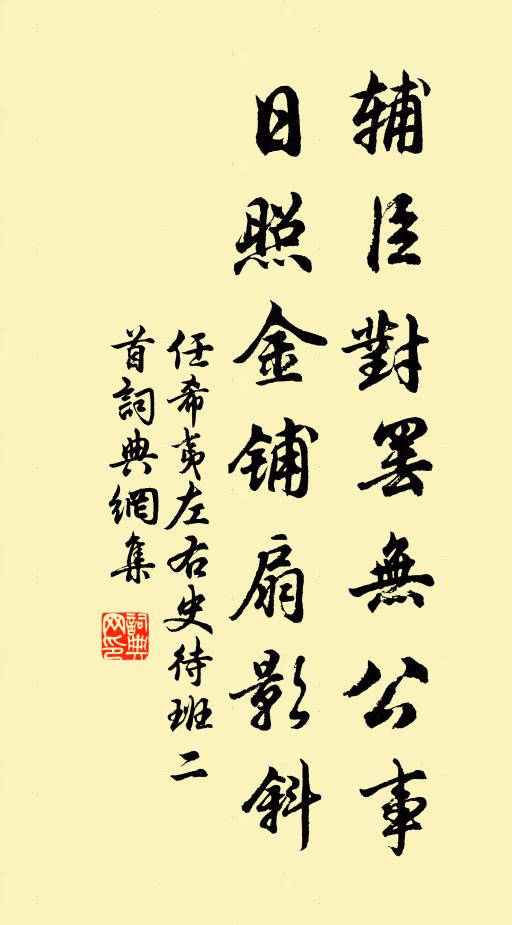 辅臣對罢無公事
日照金铺扇影斜
任希夷左右史待班二
首詞典網集
詞典网印